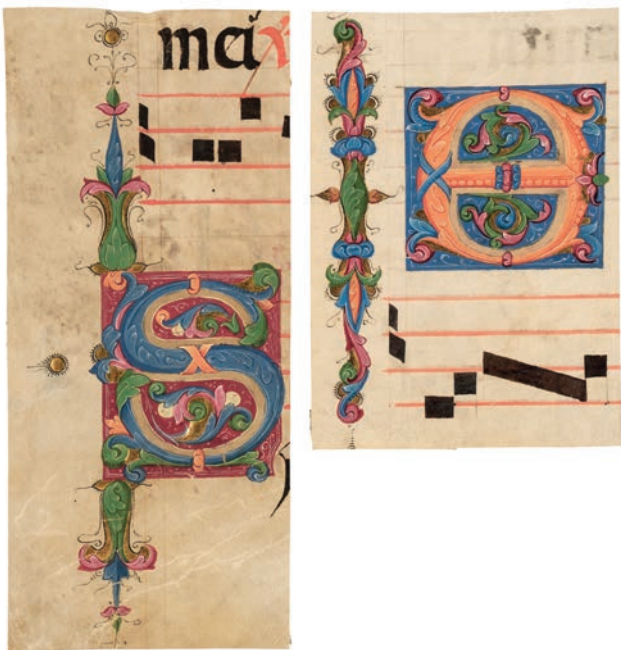 max
S
E